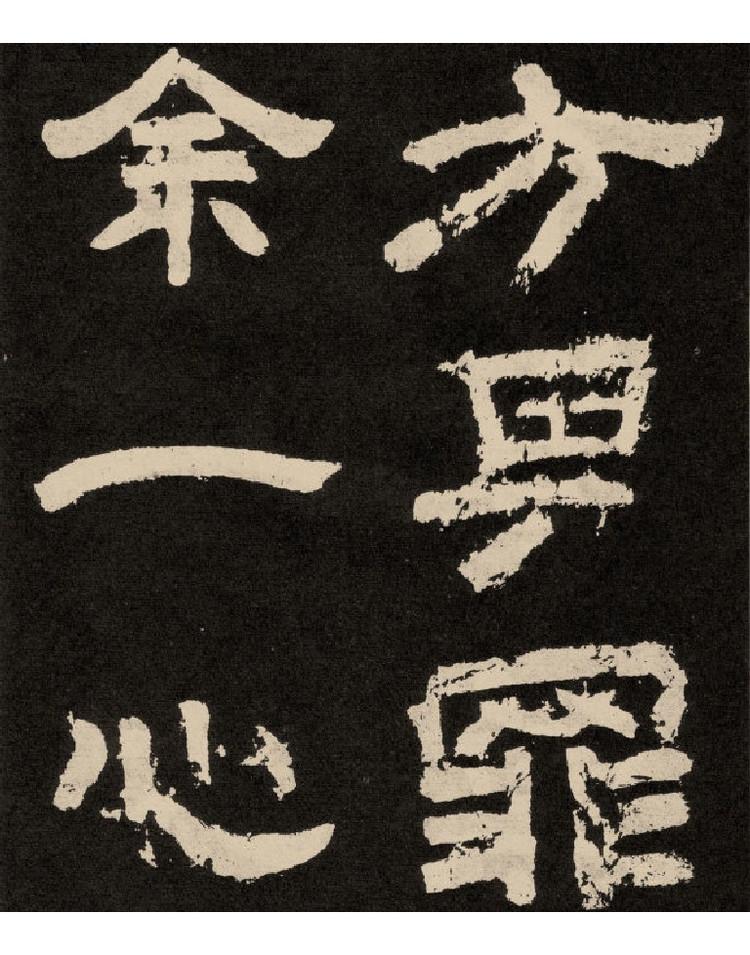 方罪
余一心